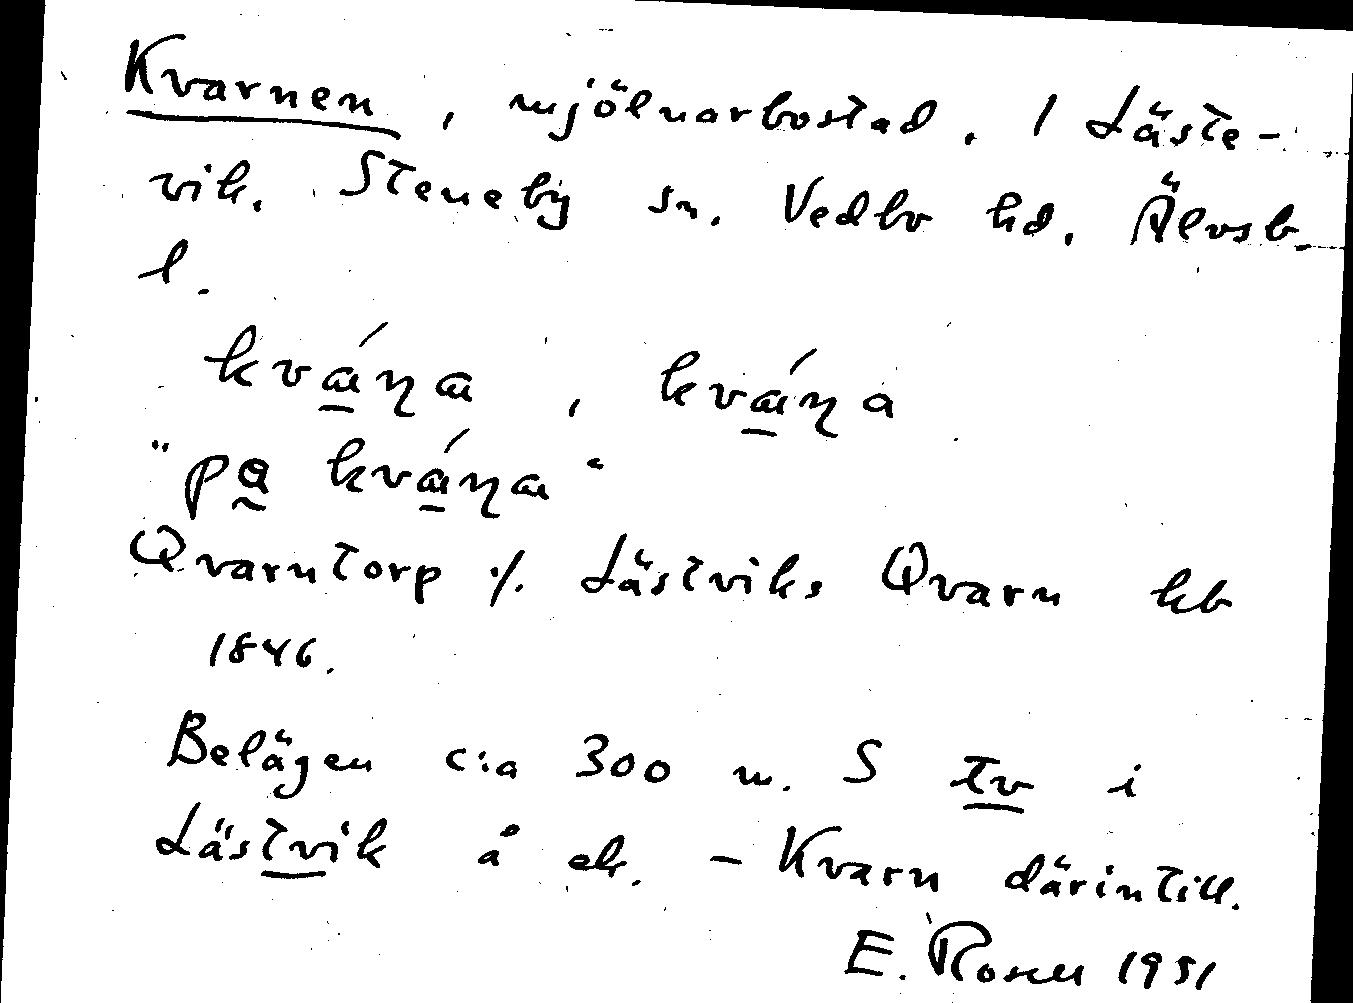 Kvarnen, mjölnarbostad. 1 Läste-
vik. Steneby sn. Vedbo hd. Älvsb.
l.
kvá̱ɳa, kvá̱ɳa
"på kvá̱ɳa"
Qvarntorp ⁒ Lästviks Qvarn kb
1846.
Belägen c:a 300 m. S tv i
Lästvik å ek. – Kvarn därintill.
E. Rosen 1931